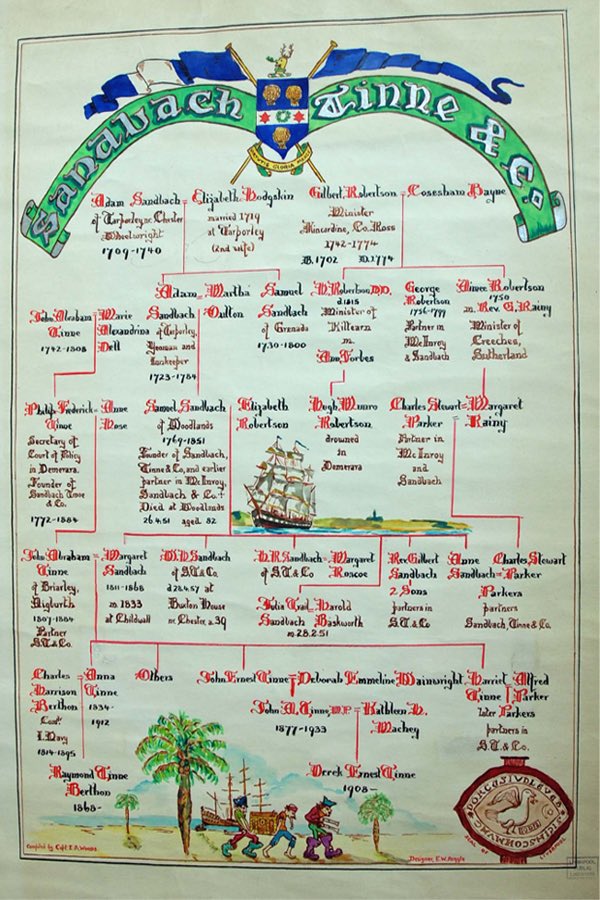 Sandbach Tinne & Co.
Adam Sandbach
of Tarporley nr Chester
Wheelwright
1709-1740
Elizabeth Hodgskin
married 1719
at Tarporley
(2nd wife)
Gilbert Robertson = Cosesham Payne
Minister
Kincardine, Co. Ross
1742-1774
B. 1702 D. 1774
John Abraham
Tinne
1742-1808
Marie
Alexandrina
Dell
Adam
Sandbach
of Tarporley,
Yeoman and
Innkeeper
1723-1784
Martha
Oulton
Samuel
Sandbach
of Grenada
1730-1800
Robertson
d. 1815
Minister of
Kiltearn
m.
Ann Forbes
George
Robertson
1756-1799
Partner in
McInroy
& Sandbach
Aimee Robertson
1750
m. Rev. G. Rainy
Minister of
Creeches,
Sutherland
Philip Frederick
Tinne
Secretary of
Court of Policy
in Demerara.
Founder of
Sandbach Tinne
& Co.
1772-1884
Anne
Rose
Samuel Sandbach
of Woodlands
1769-1851
Founder of Sandbach,
Tinne & Co, and earlier
partner in McInroy,
Sandbach & Co.
Died at Woodlands
26.4.51 aged 82
Elizabeth
Robertson
Hugh Munro
Robertson
drowned
in
Demerara
Charles Stewart
Parker
Partner in
McInroy
and
Sandbach
Margaret
Rainy
John Abraham
Tinne
of Briarley,
Aigburth
1807-1884
Partner
S.T. & Co.
Margaret
Sandbach
1811-1868
m. 1833
at Childwall
Sandbach
of S.T. & Co.
at
Buxton House
nr Chester, a 39
H.R. Sandbach = Margaret
of S.T. & Co. Roscoe
Julia Harold
Sandbach Baskworth
m. 28.2.51
Rev Gilbert
Sandbach
2 Sons
partners in
S.T. & Co
Anne
Sandbach
Charles Stewart
Parker
Parkers
partners
Sandbach, Tinne & Co.
Charles
Harrison
Berthon
Capt.
1814-1895
Anna
Tinne
1834-
1912
Others
John Ernest Tinne = Deborah Emmeline Wainwright
John A. Tinne, M.P.
1877-1933
Kathleen
Mackey
Harriet
Tinne
Alfred
Parker
later Parkers
partners in
S.T. & Co.
Raymond Tinne
Berthon
1868-
Derek Ernest Tinne
1908-
Compiled by Capt. E.A. Woods
Designer, E.W. Hoggle
SEAL OF LIVERPOOL
LIVERPOOL
PUBLIC
LIBRARIES